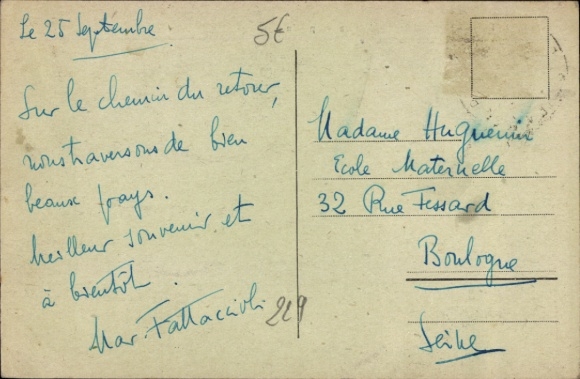 Le 25 Septembre
5€
Sur le chemin du retour,
nous traversons de bien
beaux pays.
Meilleur souvenir et
à bientôt
Mar. Fattaccioli
219
Madame Huguenin
Ecole Maternelle
32 Rue Fessard
Boulogne
Seine